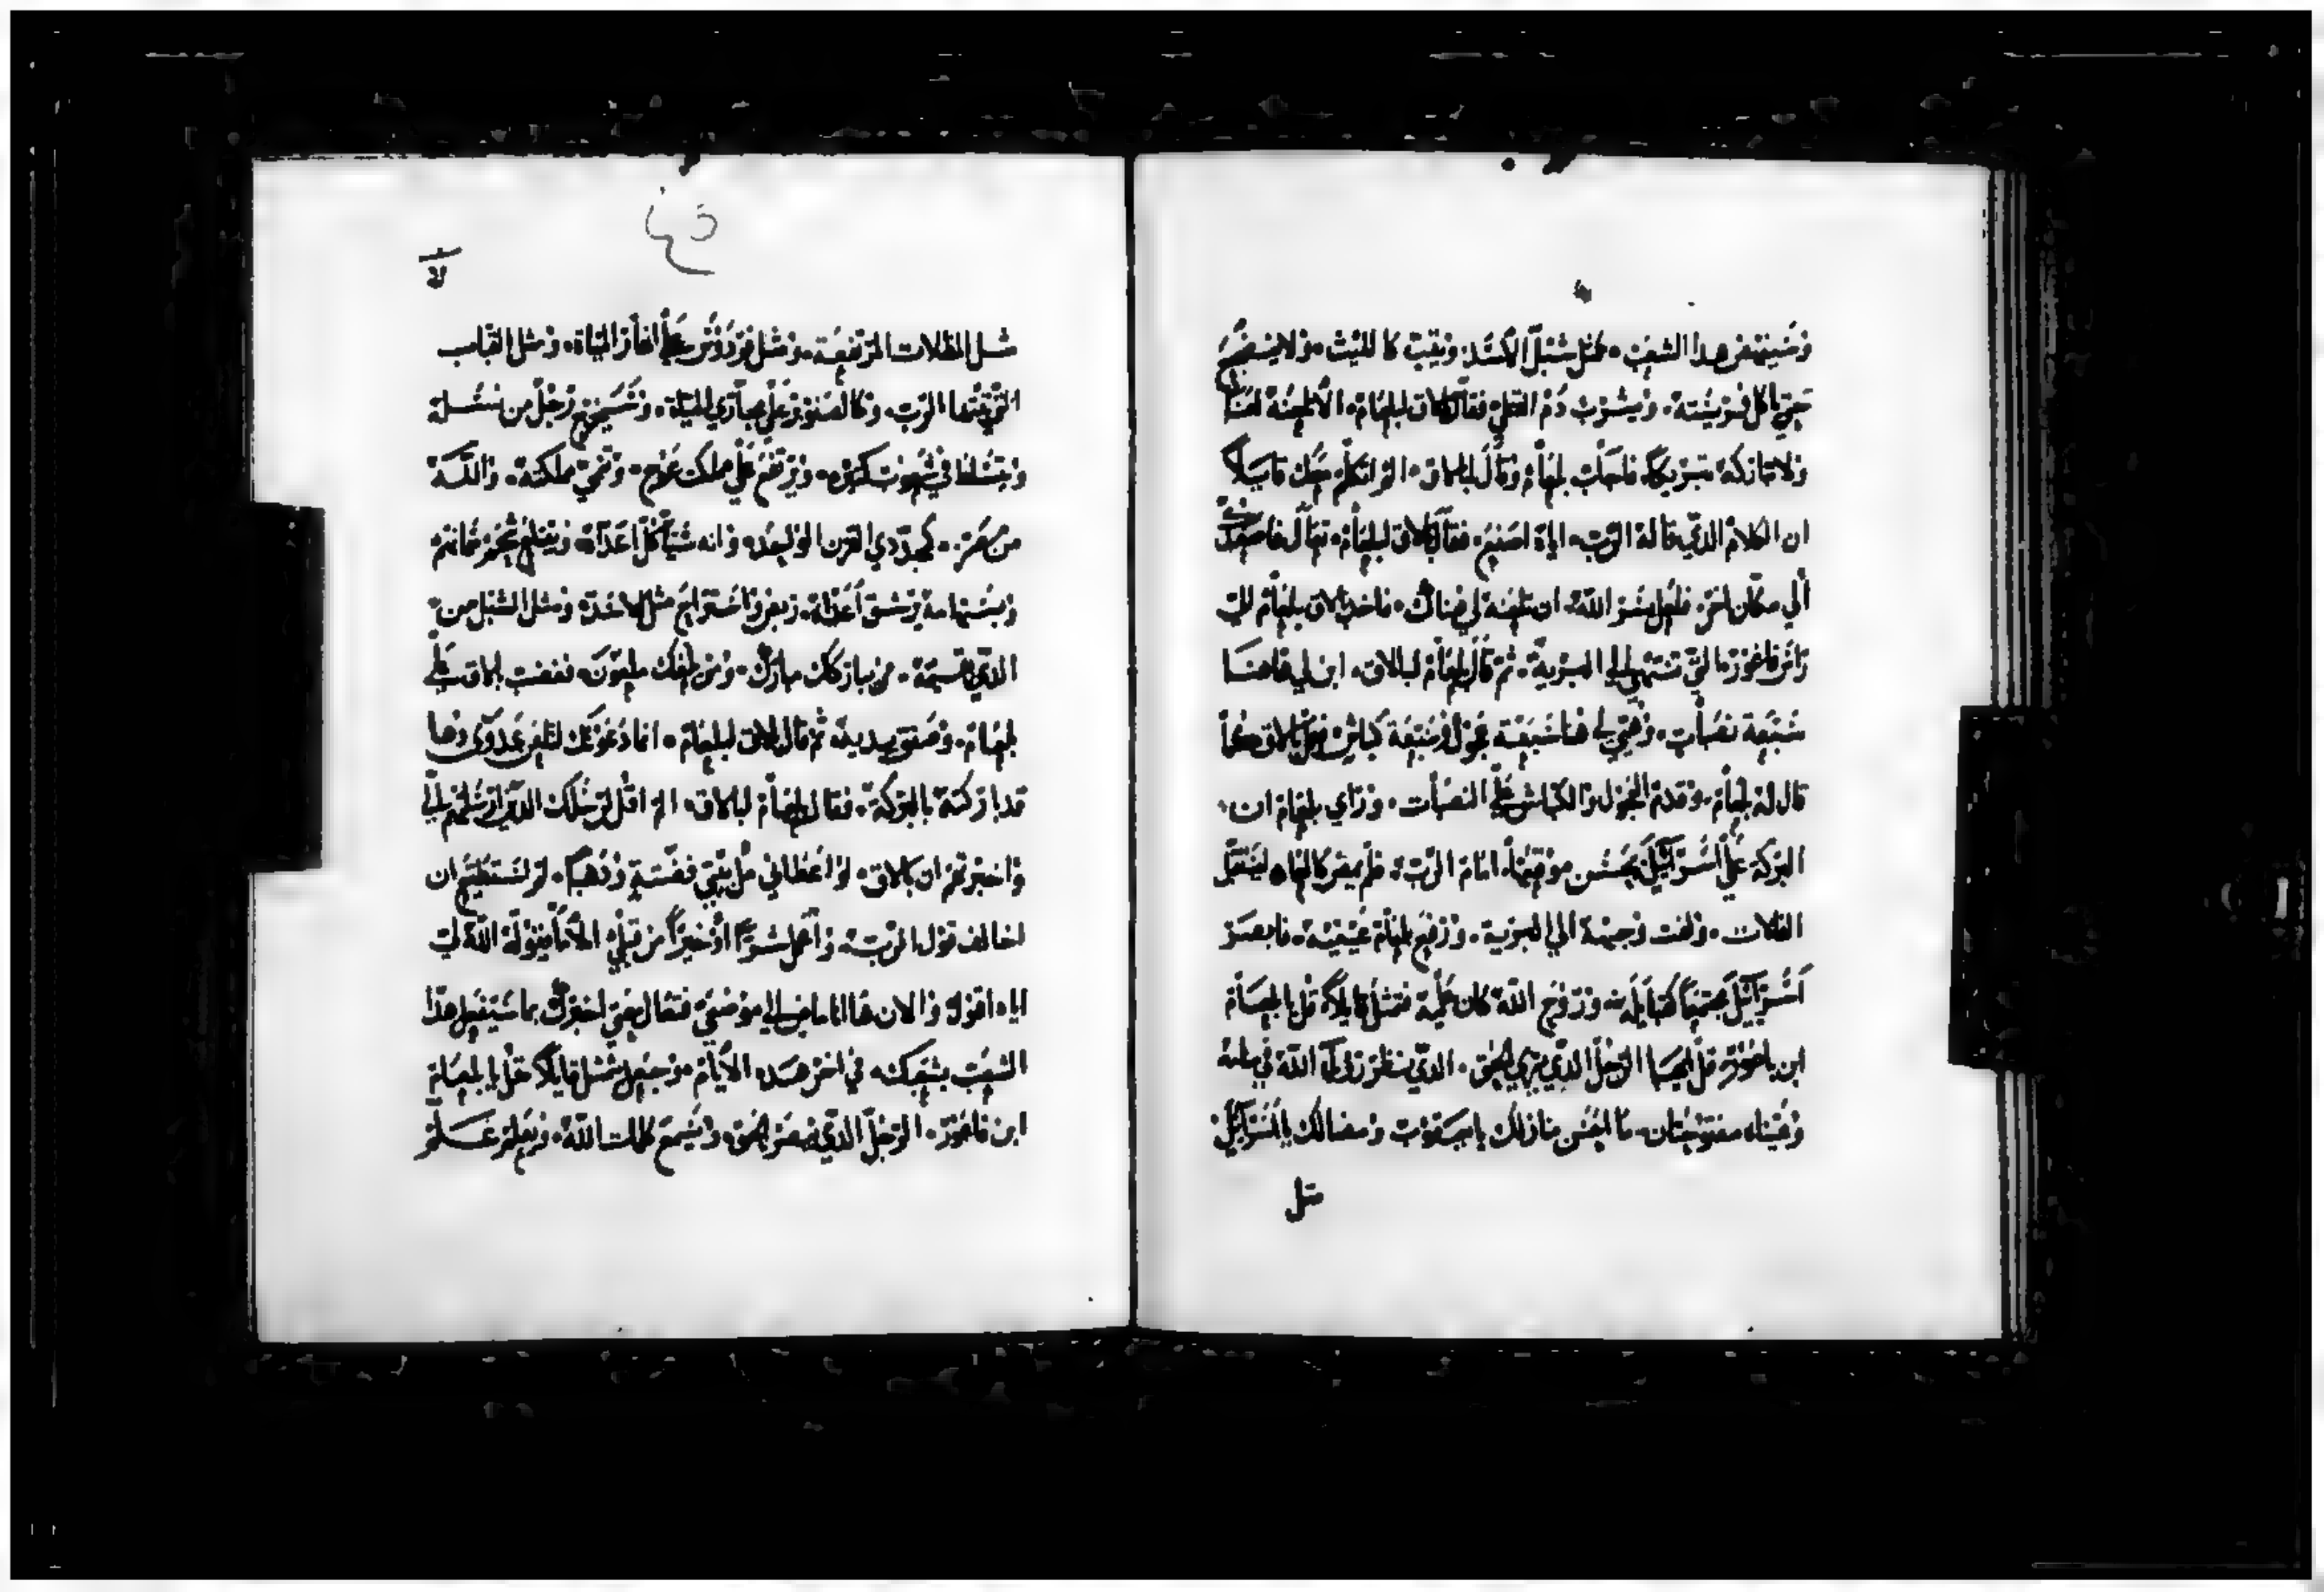 وسينهض هذا الشعب • مثل شبل الاسد • ويثب كالليث • ولا يضجع
حتي ياكل فريسته • ويشرب دم القتلي • فقال بالاق لبلعام • لا تلعنه لعنا
ولا تباركه تبريكا • فاجاب بلعام وقال لبالاق • الم اكلمك قايلا
ان الكلام الذي قاله الرب • اياه اصنع • فقال بالاق لبلعام • تعال فاصعدك
الي مكان اخر • فلعل يسر الله • ان تلعنه لي هناك • فاخذ بالاق بلعام الي
راس فاغور التي تنتهي الي البرية • ثم قال بلعام لبالاق • ابن لي هاهنا
سبعة نصبات • وهيي لي هنا سبعة عجول وسبعة كباش • ففعل بالاق كما
قال له بلعام • وقدم العجول والكباش علي النصبات • وراي بلعام ان •
البركة علي اسرائيل تحسن موقعها • امام الرب • فلم يمض كالعاده ليستقبل
الفلات • ولفت وجهه الي البرية • ورفع بلعام عينيه • فابصر
اسرائيل مجتمعا كقبايله • وروح الله كان عليه فتمثل قايلا • قل يا بلعام
ابن باعور • قل ايها الرجل الذي يري الحق • الذي ينظر رويا الله في حلمه
وعيناه مفتوحتان • ما احسن منازلك يا يعقوب • ومضالك يا اسرائيل •
مثل
مثل المظلات المرتفعة • ومثل فردوس علي انهار المياه • ومثل القباب
التي ثبتها الرب • وكالصنوبر علي مجاري المياه • وسيخرج رجل من نسله
ويتسلط في شعوب كثيره • ويرتفع علي ملك عوج • وتنمي مملكته • والله
من مصر • كمجد ذي القرن الواحد • وانه سياكل اعداه • ويقلع شحومهم
وبسهامه يرشق اعداه • ربض واستراح مثل الاسد • ومثل الشبل من •
الذي يقيمه • من يباركك مبارك • ومن يلعنك ملعون • فغضب بالاق علي
بلعام • وصفق بيديه ثم قال بالاق لبلعام • انما دعوتك لتلعن عدوي وها
قد باركته بالبركة • فقال بلعام لبالاق • الم اقل لرسلك الذين ارسلتهم الي
واخبرتهم ان بالاق • لو اعطاني مل بيته فضة وذهبا • لم استطيع ان
اخالف قول الرب • واعمل شرا او خيرا من قبلي • الا ما يقوله الله لي
اياه اقول والان ها انا ماض الي موضعي فتعال معي اخبرك بما سيفعل هذا
الشعب بشعبك • في اخر هذه الايام • وجعل يتمثل قايلا • قل يا بلعام
ابن فاعور • الرجل الذي يبصر الحق • ويسمع كلمات الله • ويعلم علم